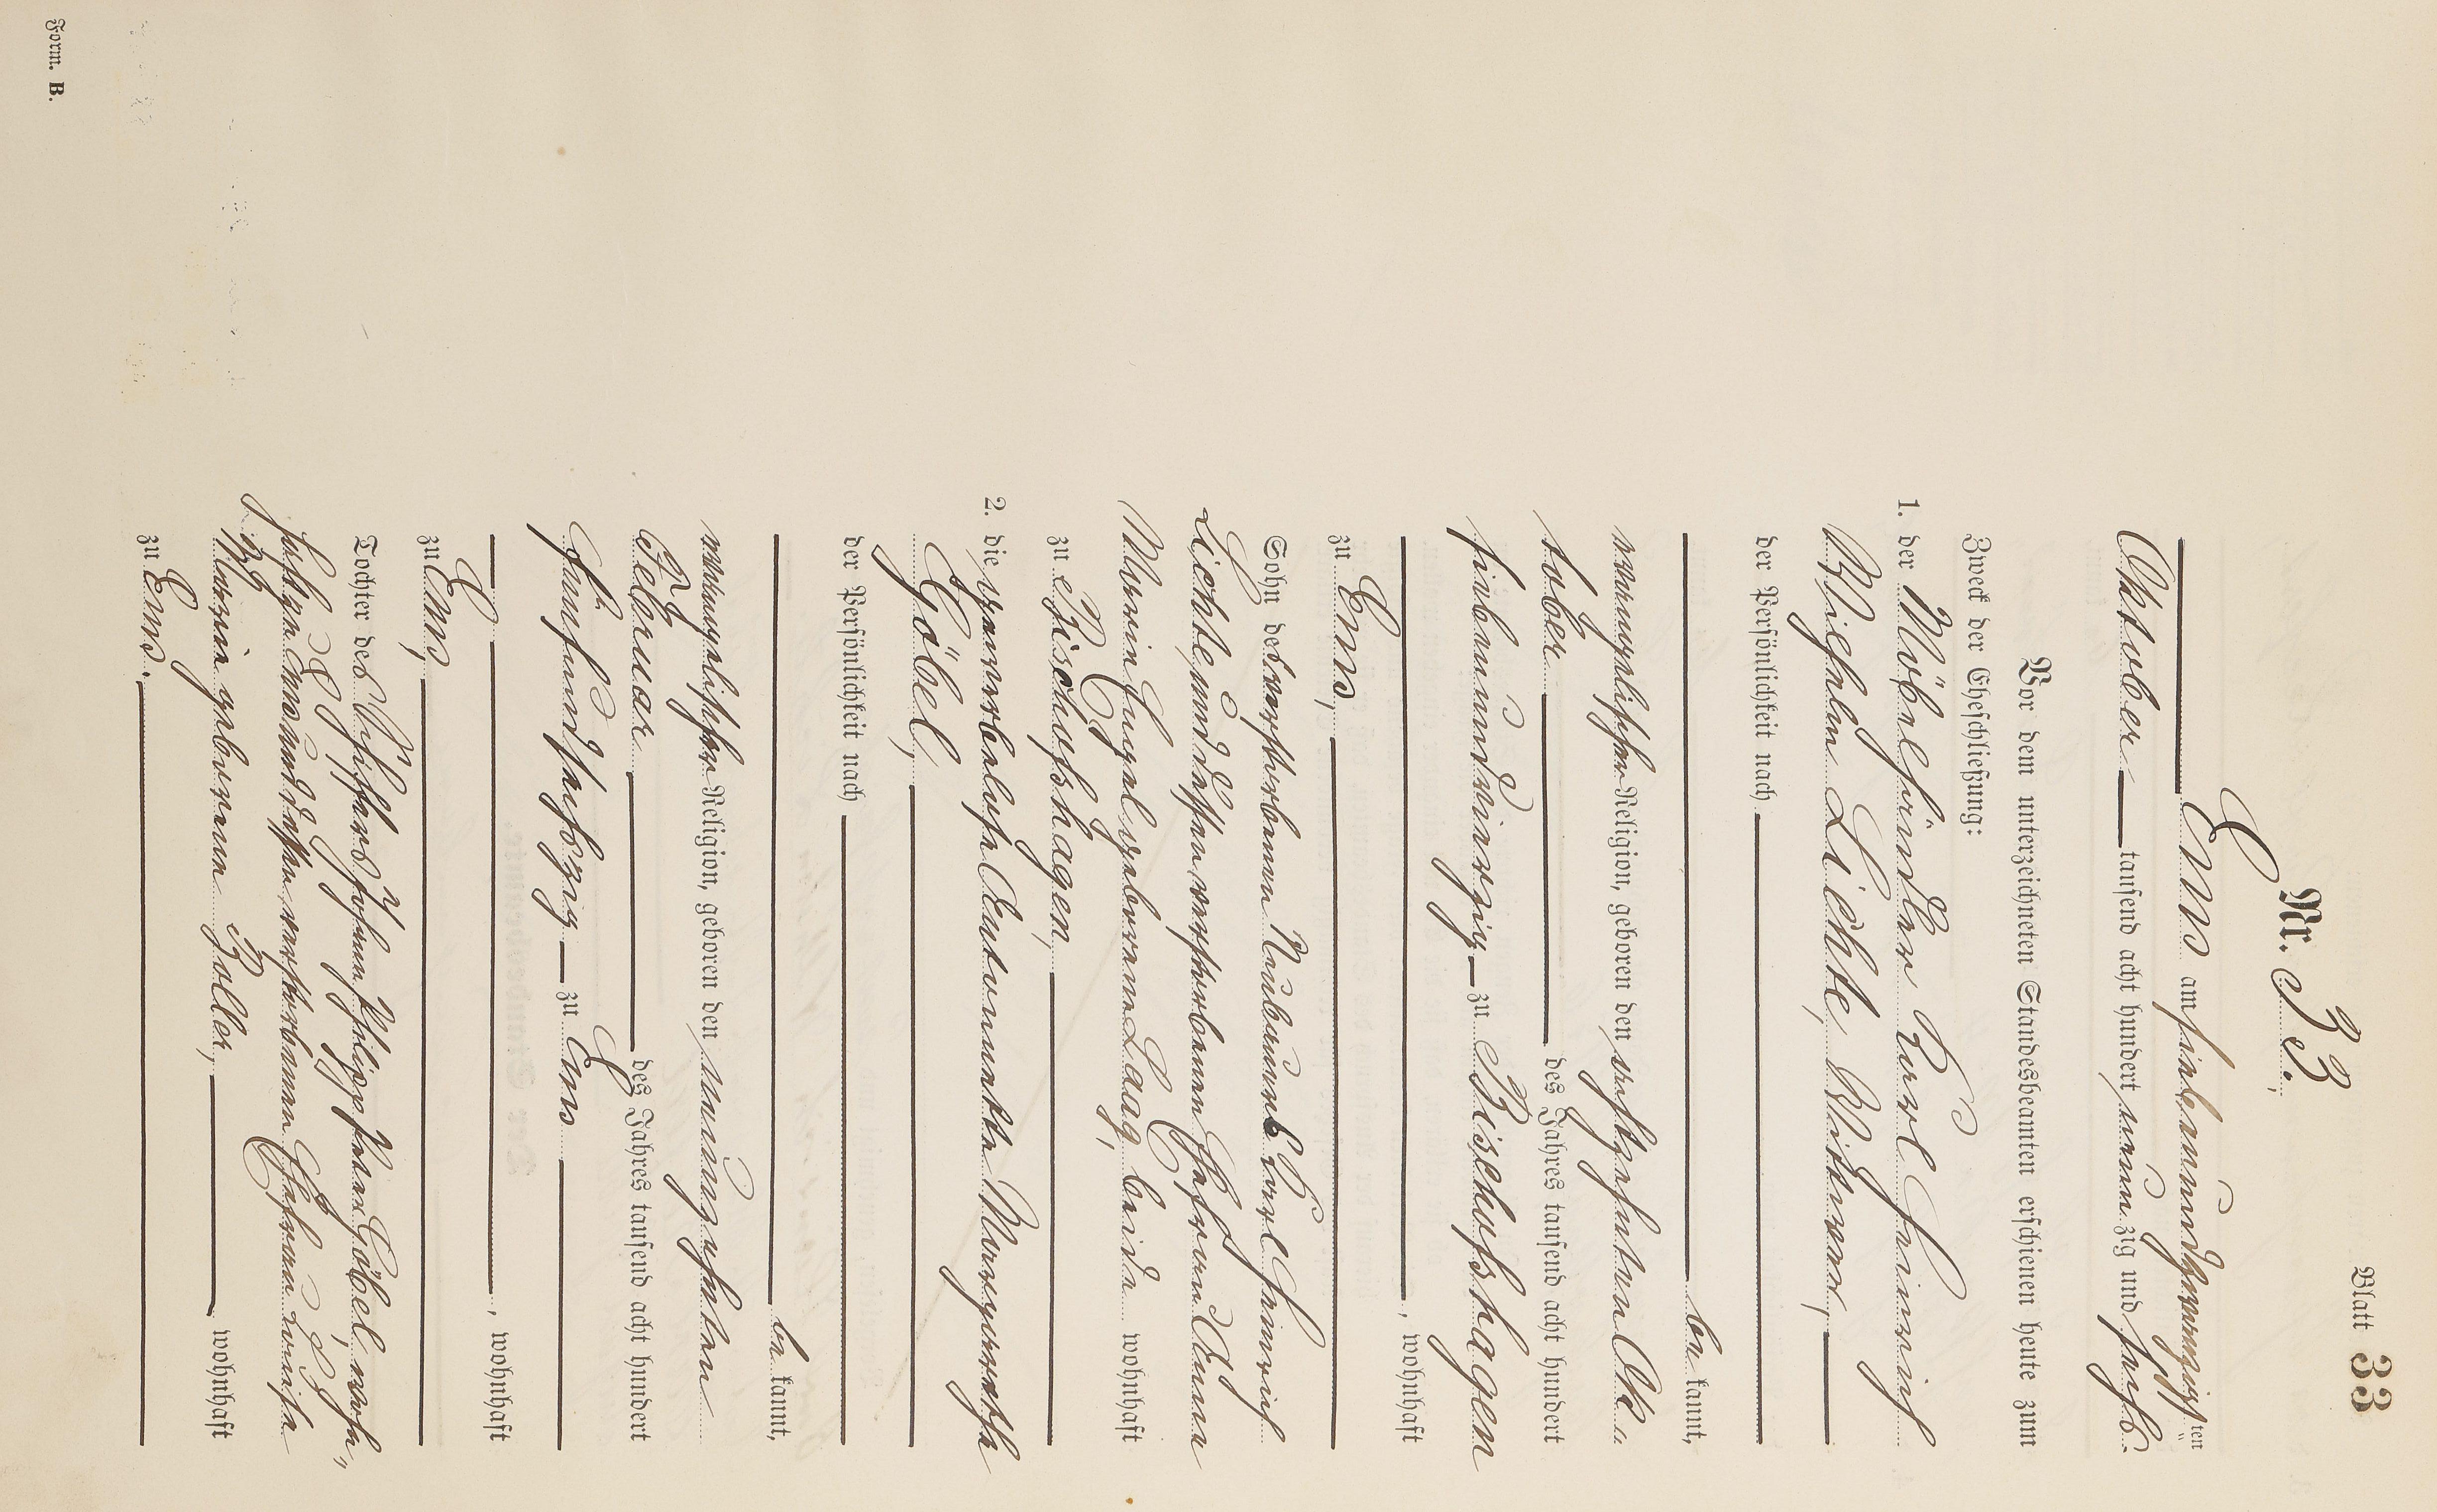 Blatt 33
Nr. 33.
Ems am siebenundzwanzigsten
Oktober tausend acht hundert neunzig und sechs
Vor dem unterzeichneten Standesbeamten erschienen heute zum
Zweck der Eheschließung:
1. der Möbelhändler Karl Heinrich
Wilhelm Lichte, Witwer,
der Persönlichkeit nach
be kannt,
evangelischer Religion, geboren den sechszehnten Ok"
tober des Jahres tausend acht hundert
siebenundvierzig zu Bischofshagen
, wohnhaft
zu Ems,
Sohn des verstorbenen Neubauers Karl Heinrich
Lichte, und dessen verstorbenen Ehefrau Anna
Maria Engel geborene Laag, beide wohnhaft
zu Bischofshagen,
2. die gewerbelose Antonette Margarethe
Göbel,
der Persönlichkeit nach
be kannt,
evangelischer Religion, geboren den neunzehnten
Februar des Jahres tausend acht hundert
fünfundsechszig zu Ems
, wohnhaft
zu Ems,
Tochter des Schiffers Johann Philipp Peter Göbel, wohn"
haft zu Ems und dessen verstorbenen Ehefrau Luise
Maria geborenen Zoller, wohnhaft
zu Ems.
Form. B.